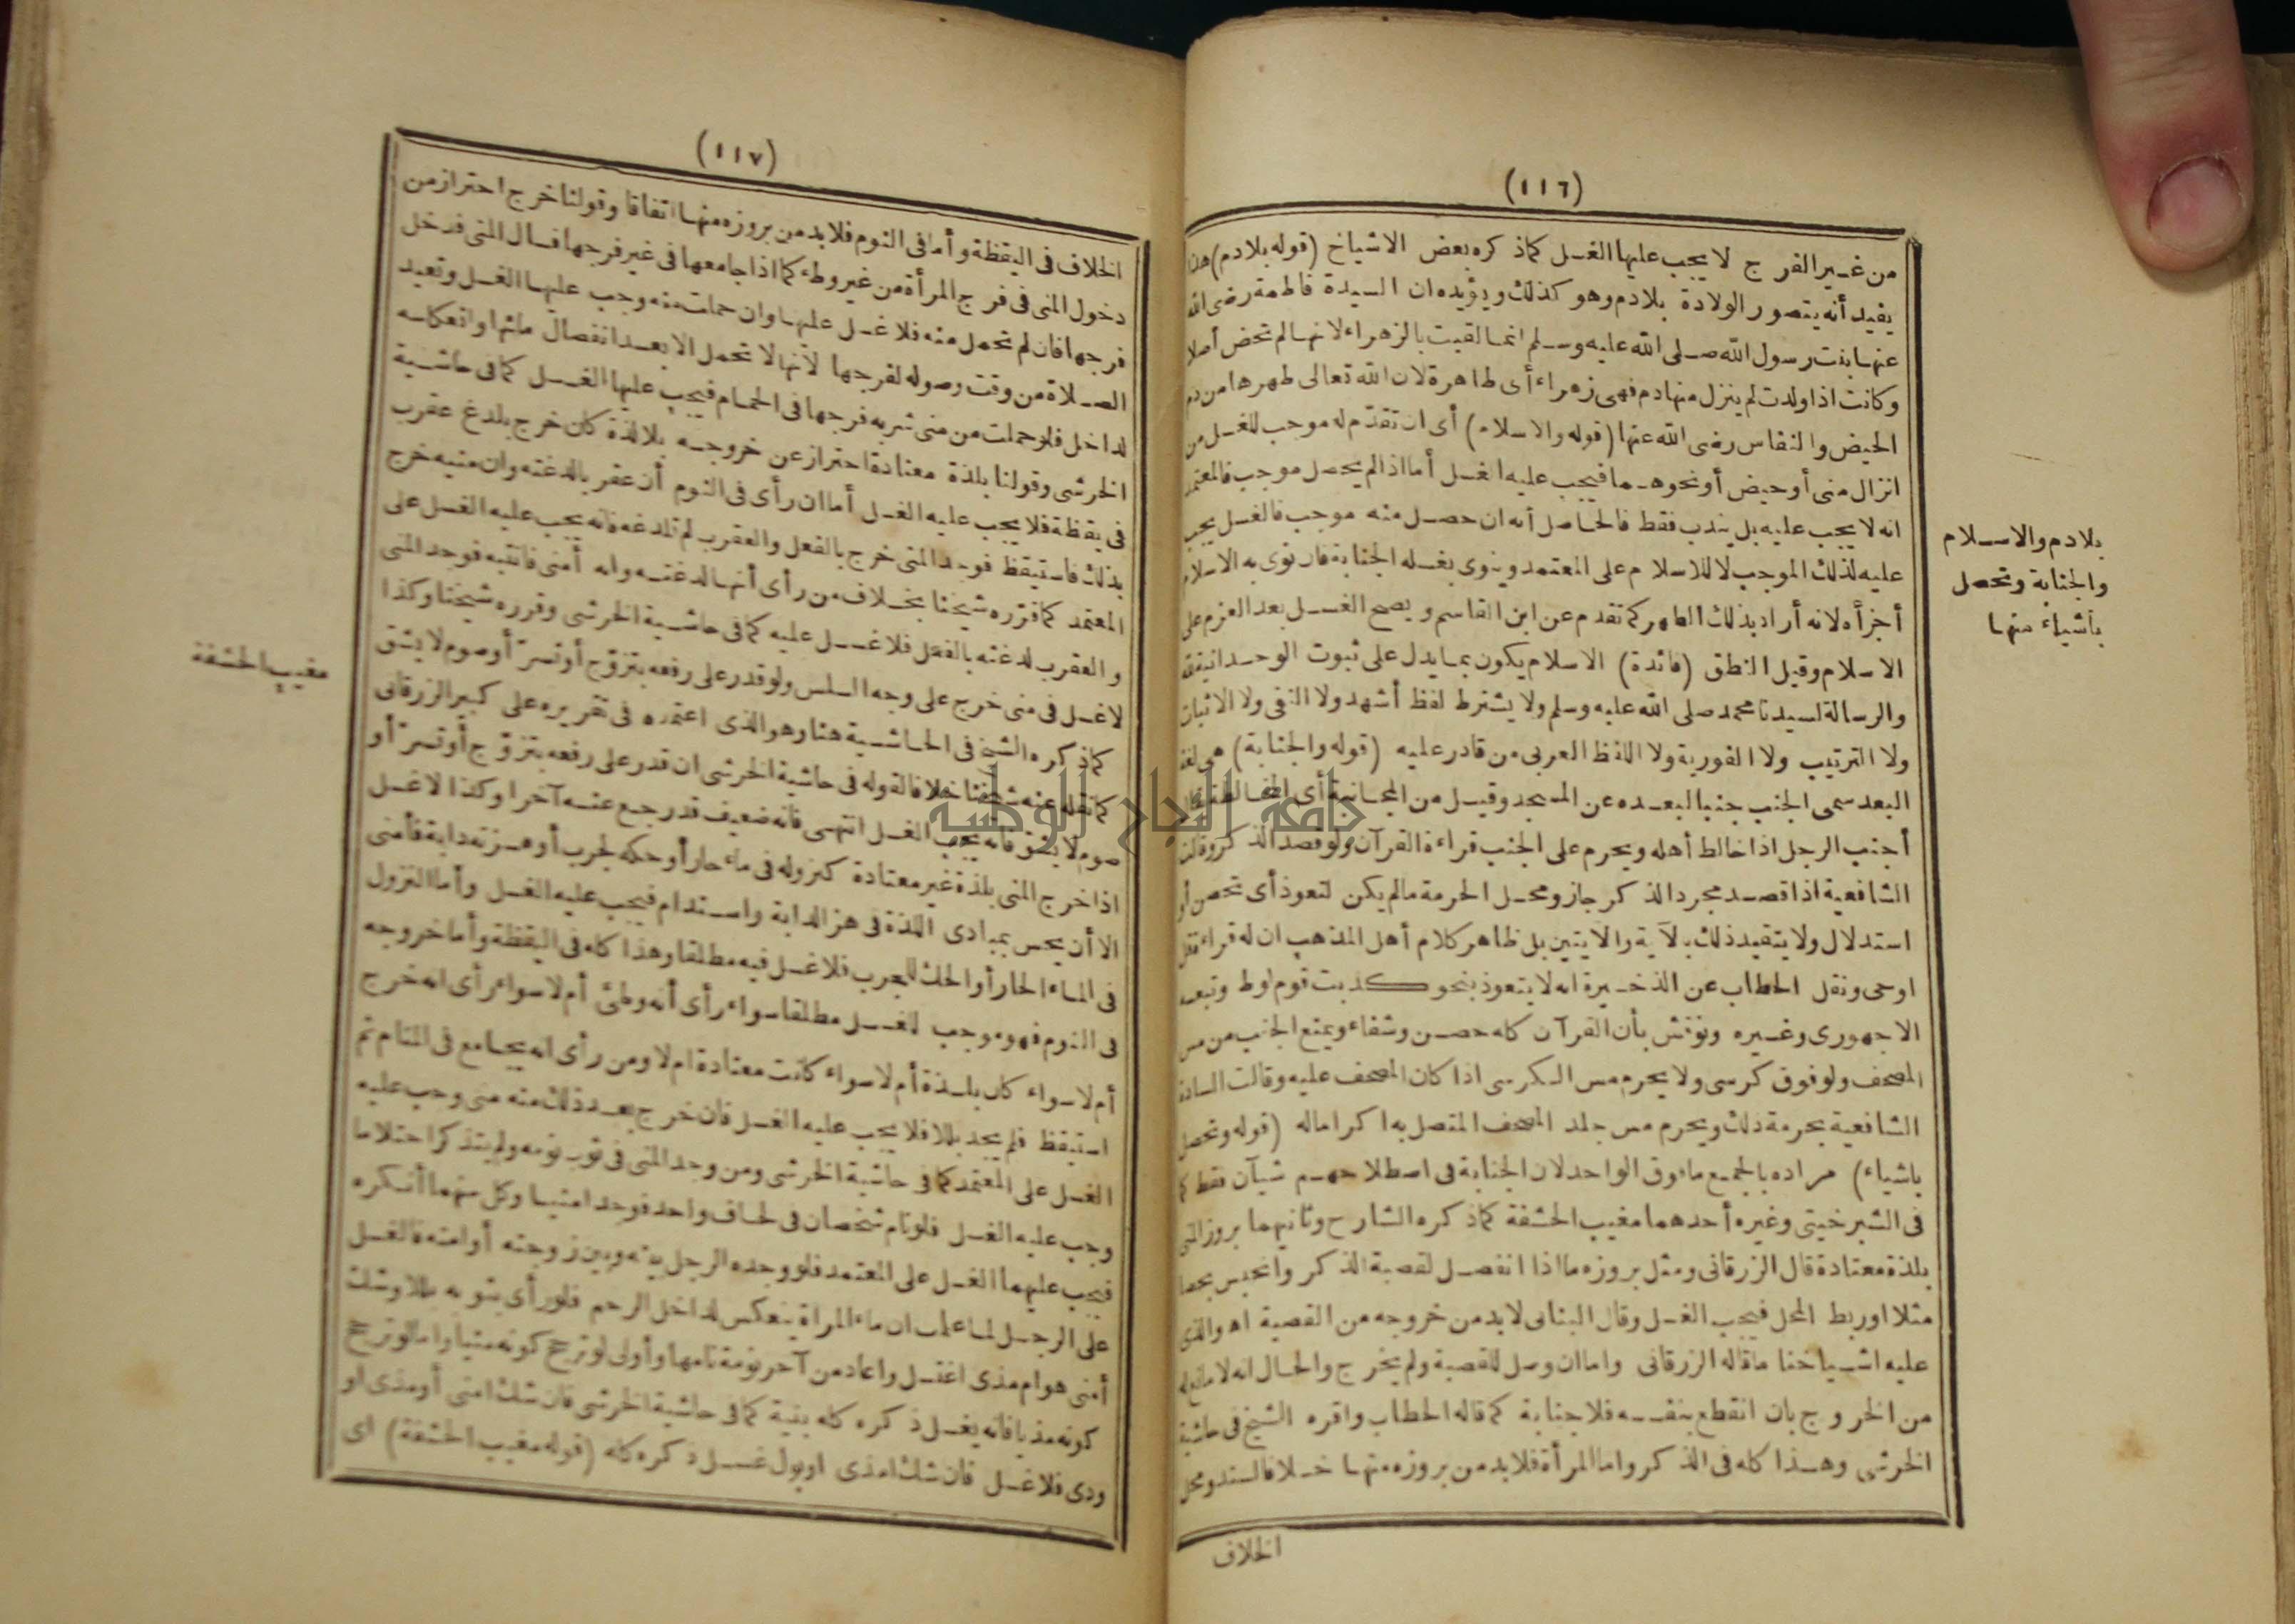 (١١٦)
من غير الفرج لا يجب عليها الغسل كما ذكره بعض الاشياخ (قوله بلا دم) هذا
يفيد أنه يتصور الولادة بلا دم وهو كذلك ويؤيده ان السيدة فاطمة رضى الله
عنها بنت رسول الله صلى الله عليه وسلم انما لقبت بالزهراء لانها لم تحض أصلا
وكانت اذا ولدت لم ينزل منها دم فهى زهراء أى طاهرة لان الله تعالى طهرها من دم
الحيض والنفاس رضى الله عنها (قوله والاسلام) أى ان تقدّم له موجب للغسل من
انزال منى أو حيض أو نحوهما فيجب عليه الغسل أما اذا لم يحصل موجب فالمعتمد
انه لا يجب عليه بل يندب فقط فالحاصل أنه ان حصل منه موجب فالغسل يجب
عليه لذلك الموجب لا للاسلام على المعتمد وينوى بغسله الجنابة فان نوى به الاسلام
أجزأه لانه أراد بذلك الطهر كما تقدم عن ابن القاسم ويصح الغسل بعد العزم على
الاسلام وقبل النطق (فائدة) الاسلام يكون بما يدل على ثبوت الوحدانية لله
والرسالة لسيدنا محمد صلى الله عليه وسلم ولا يشترط لفظ أشهد ولا النفى ولا الاثبات
ولا الترتيب ولا الفورية ولا اللفظ العربى من قادر عليه (قوله والجنابة) هى لغة
البعد سمى الجنب جنبا لبعده عن المسجد وقيل من المجانبة أى المخالطة
أجنب الرجل اذا خالط أهله ويحرم على الجنب قراءة القرآن ولو قصد الذكر وقالت
الشافعية اذا قصد مجرد الذكر جاز ومحل الحرمة ما لم يكن لتعوذ أى تحصن أو
استدلال ولا يتقيد ذلك بالآية والآيتين بل ظاهر كلام أهل المذهب ان له قراءة قل
اوحى ونقل الحطاب عن الذخيرة انه لا يتعوذ بنحو كذبت قوم لوط وتبعه
الاجهورى وغيره ونوقش بأن القرآن كله حصن وشفاء ويمنع الجنب من مس
المصحف ولو فوق كرسى ولا يحرم مس الكرسى اذا كان المصحف عليه وقالت السادة
الشافعية بحرمة ذلك ويحرم مس جلد المصحف المتصل به اكراما له (قوله وتحصل
باشياء) مراده بالجمع ما فوق الواحد لان الجنابة فى اصطلاحهم شيآن فقط كما
فى الشبرخيتى وغيره أحدهما مغيب الحشفة كما ذكره الشارح وثانيهما بروز المنى
بلذة معتادة قال الزرقانى ومثل بروزه ما اذا انفصل لقصبة الذكر وانحبس بحصا
مثلا او ربط المحل فيجب الغسل وقال البنانى لا بد من خروجه من القصبة اه والذى
عليه اشياخنا ما قاله الزرقانى واما ان وصل للقصبة ولم يخرج والحال انه لا مانع له
من الخروج بان انقطع بنفسه فلا جنابة كما قاله الحطاب واقره الشيخ فى حاشية
الخرشى وهذا كله فى الذكر واما المرأة فلا بد من بروزه منها خلافا لسند ومحل
الخلاف
بلا دم والاسلام
والجنابة وتحصل
بأشياء منها
(١١٧)
الخلاف فى اليقظة وأما فى النوم فلا بد من بروزه منها اتفاقا وقولنا خرج احتراز من
دخول المنى فى فرج المرأة من غير وطء كما اذا جامعها فى غير فرجها فسال المنى فدخل
فرجها فان لم تحمل منه فلا غسل عليها وان حملت منه وجب عليها الغسل وتعيد
الصلاة من وقت وصوله لفرجها لأنها لا تحمل الا بعد انفصال مائها وانعكاسه
لداخل فلو حملت من منى شربه فرجها فى الحمام فيجب عليها الغسل كما فى حاشية
الخرشى وقولنا بلذة معتادة احتراز عن خروجه بلا لذة كان خرج بلدغ عقرب
فى يقظة فلا يجب عليه الغسل أما ان رأى فى النوم أن عقربا لدغته وان منيه خرج
بذلك فاستيقظ فوجد المنى خرج بالفعل والعقرب لم تلدغه فانه يجب عليه الغسل على
المعتمد كما قرّره شيخنا بخلاف من رأى أنها لدغته وانه أمنى فانتبه فوجد المنى
والعقرب لدغته بالفعل فلا غسل عليه كما فى حاشية الخرشى وقرره شيخنا وكذا
لا غسل فى منى خرج على وجه السلس ولو قدر على رفعه بتزوّج أو تسرّ أو صوم لا يشق
كما ذكره الشيخ فى الحاشية هنا وهو الذى اعتمده فى تقريره على كبير الزرقانى
كما نقله عنه شيخنا خلافا لقوله فى حاشية الخرشى ان قدر على رفعه بتزوّج أو تسرّ أو
صوم لا يشق فانه يجب الغسل انتهى فانه ضعيف قد رجع عنه آخرا وكذا لا غسل
اذا خرج المنى بلذة غير معتادة كنزوله فى ماء حار أو حكه لجرب أو هزته دابة فأمنى
الا أن يحس بمبادى اللذة فى هز الدابة واستدام فيجب عليه الغسل وأما النزول
فى الماء الحار أو الحك للجرب فلا غسل فيه مطلقا وهذا كله فى اليقظة وأما خروجه
فى النوم فهو موجب للغسل مطلقا سواء رأى أنه وطئ أم لا سواء رأى انه خرج
أم لا سواء كان بلذة أم لا سواء كانت معتادة ام لا ومن رأى انه يجامع فى المنام ثم
استيقظ فلم يجد بللا فلا يجب عليه الغسل فان خرج بعد ذلك منه منى وجب عليه
الغسل على المعتمد كما فى حاشية الخرشى ومن وجد المنى فى ثوب نومه ولم يتذكر احتلاما
وجب عليه الغسل فلو نام شخصان فى لحاف واحد فوجدا منيا وكل منهما أنكره
فيجب عليهما الغسل على المعتمد فلو وجده الرجل بينه وبين زوجته أو امته فالغسل
على الرجل لما علمت ان ماء المراة ينعكس لداخل الرحم فلو رأى بثوبه بللا وشك
أمنى هو ام مذى اغتسل واعاد من آخر نومة نامها وأولى لو ترجح كونه منيا واما لو ترجح
كونه مذيا فانه يغسل ذكره كله بنية كما فى حاشية الخرشى فان شك امنى أو مذى او
ودى فلا غسل فان شك امذى او بول غسل ذكره كله (قوله مغيب الحشفة) اى
مغيب الحشفة
جامعة النجاح الوطنية